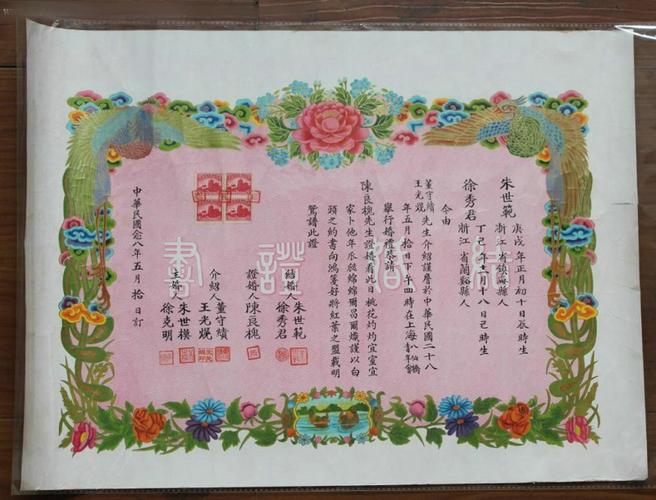 朱世範 浙江省鎮海縣人
庚戌年正月初十日辰時生
徐秀君 浙江省蘭谿縣人
丁巳年十一月十八日巳時生
今由
董守績
王光熀 先生介紹謹詹於中華民國二十八
年五月拾日下午四時在上海八仙橋青年會
舉行婚禮恭請
陳良槐先生證婚看此日桃花灼灼宜室宜
家卜他年瓜瓞緜緜爾昌爾熾謹以白
頭之約書向鴻箋好將紅葉之盟載明
鴛譜此證
結婚人 朱世範
徐秀君
證婚人 陳良槐
介紹人 董守績
王光熀
主婚人 朱世模
徐克明
中華民國念八年五月拾日訂
結婚證書